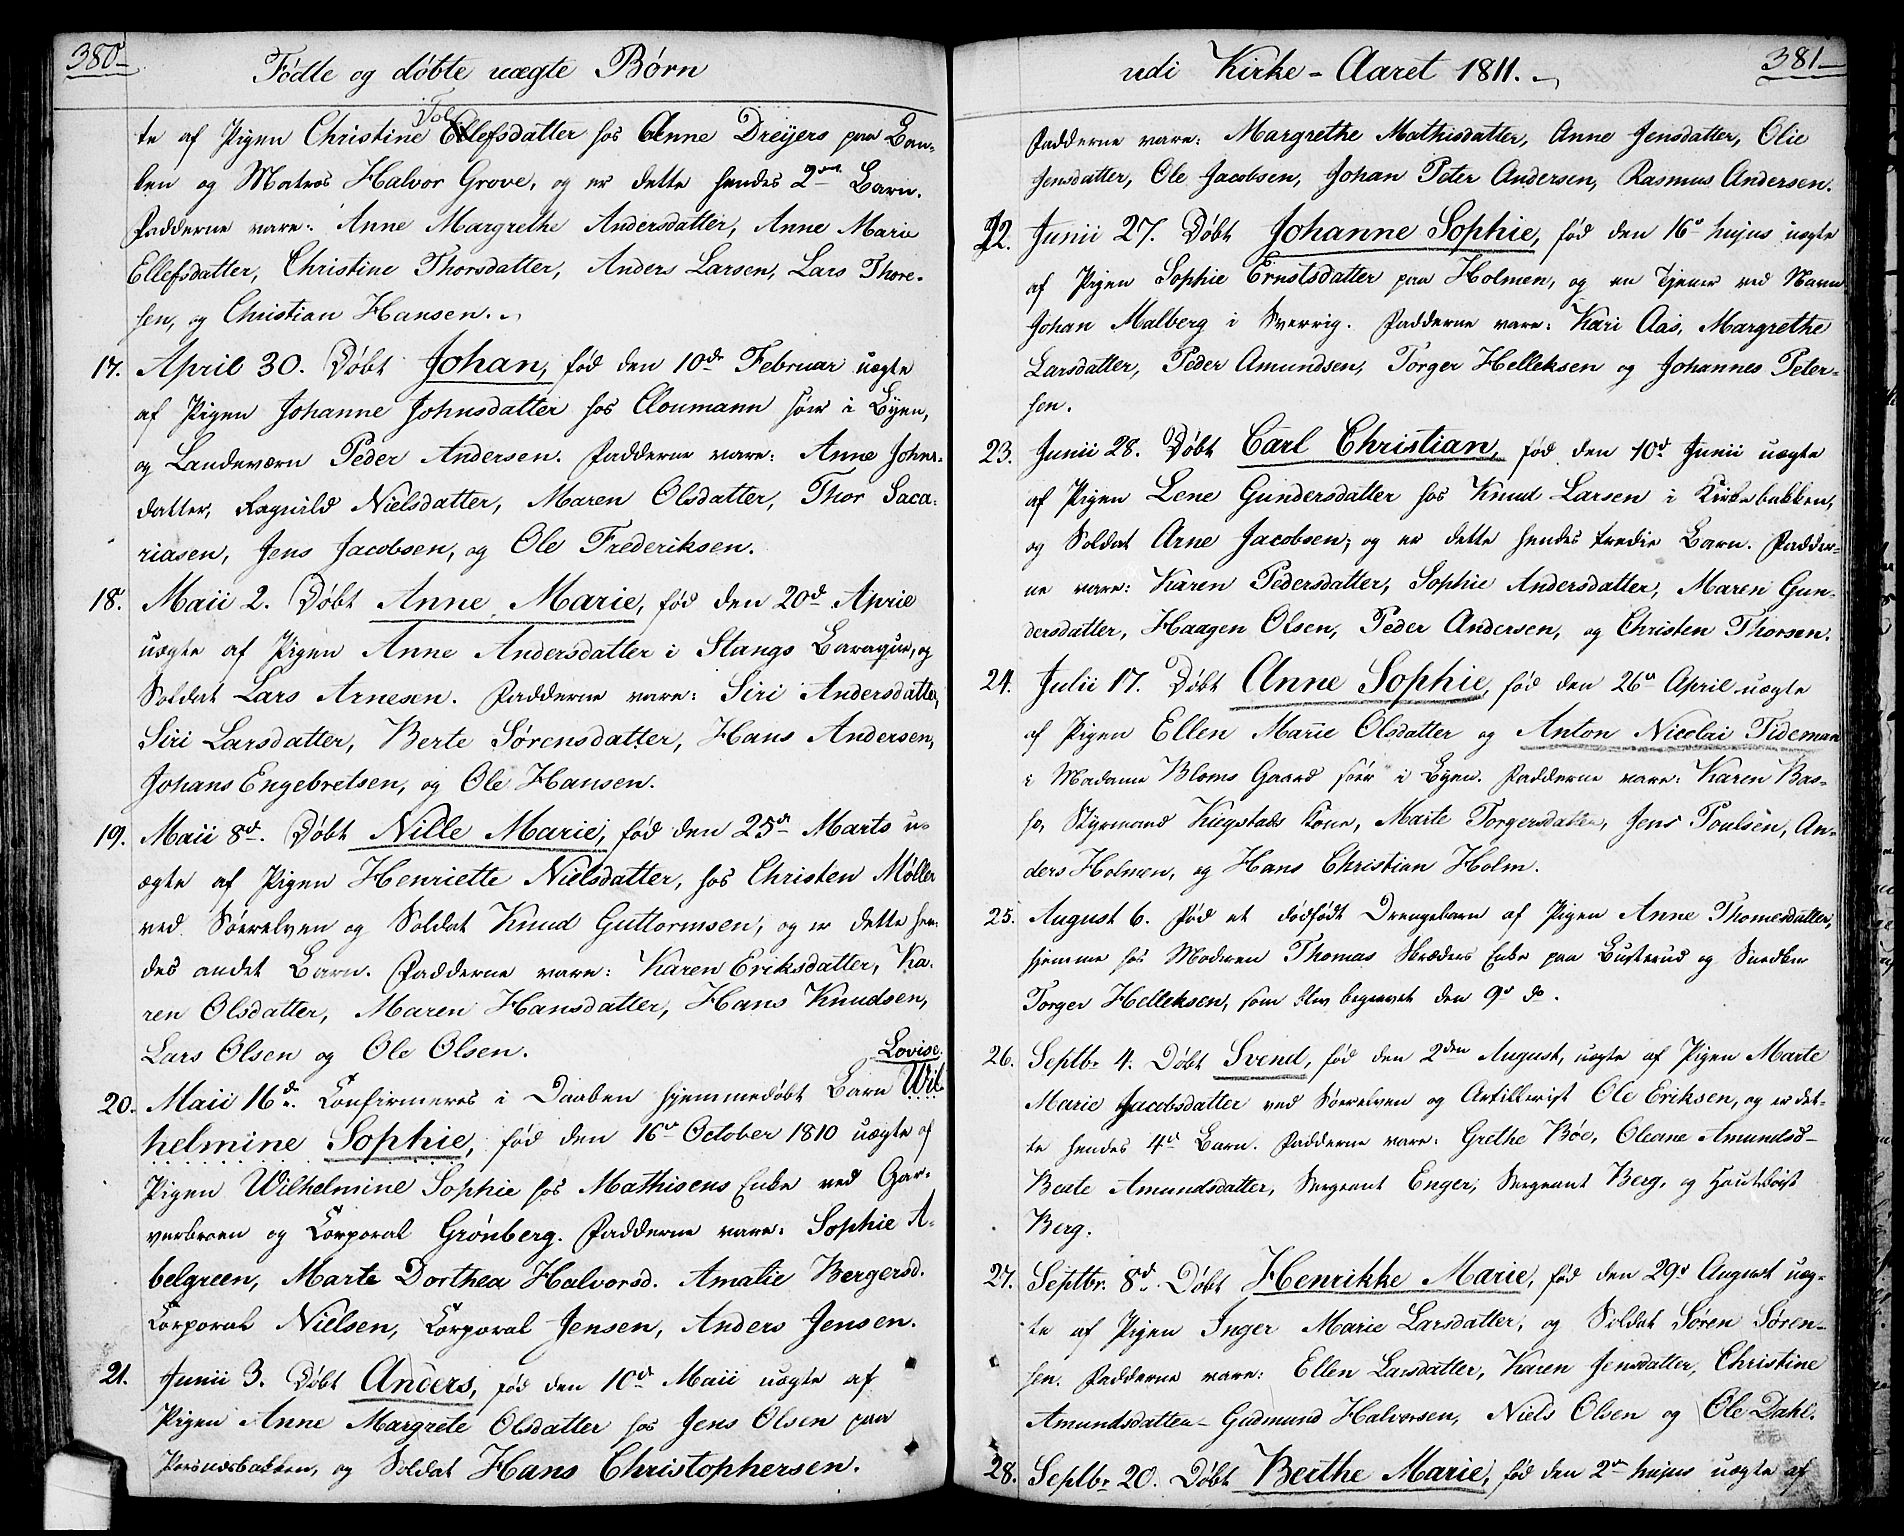 380
Födte og döbte uægte Börn
te af Pigen Christine Ellefsdatter hos Anne Dreyers paa Ban-
ken og Matros Halvor Grove, og er dette hendes 2det Barn.
Fadderne vare: Anne Margrethe Andersdatter, Anne Marie
Ellefsdatter, Christine Thorsdatter, Anders Larsen, Lars Thore-
sen, og Christian Hansen.
17. April 30. Döbt Johan, fød den 10de Februar uægte
af Pigen Johanne Johnsdatter hos Cloumann her i Byen,
og Landeværn Peder Andersen. Fadderne vare: Anne Johns-
datter, Ragnild Nielsdatter, Maren Olsdatter, Thor Saca-
riasen, Jens Jacobsen, og Ole Frederiksen.
18. Maii 2. Döbt Anne Marie, fød den 20de April
uægte af Pigen Anne Andersdatter i Stangs Baraque, og
Soldat Lars Arnesen. Fadderne vare: Siri Andersdatter,
Siri Larsdatter, Berte Sörensdatter, Hans Andersen,
Johans Engebretsen, og Ole Hansen.
19. Maii 8de. Döbt Nille Marie, fød den 25de Marts u-
ægte af Pigen Henriette Nielsdatter, hos Christen Möller
ved Söerelven og Soldat Knud Guttormsen, og er dette hen-
des andet Barn. Fadderne vare: Karen Eriksdatter, Ka-
ren Olsdatter, Maren Hansdatter, Hans Knudsen,
Lars Olsen og Ole Olsen.
Lovise
20. Maii 16de. Confirmeres i Daaben hjemmedöbt Barn Wil-
helmine Sophie, fød den 16de October 1810 uægte af
Pigen Wilhelmine Sophie hos Mathisens Enke ved Gar-
verbroen og Corporal Grönberg. Fadderne vare: Sophie A-
belgreen, Marte Dorthea Halvorsd. Amalie Bergersd.
Corporal Nielsen, Corporal Jensen, Anders Jensen.
21. Junii 3. Döbt Anders, fød den 10de Maii uægte af
Pigen Anne Margrete Olsdatter hos Jens Olsen paa
og Soldat Hans Christophersen.
udi Kirke-Aaret 1811.
381
Fadderne vare: Margrethe Mathisdatter, Anne Jensdatter, Olie
Jensdatter, Ole Jacobsen, Johan Peter Andersen, Rasmus Andersen.
22. Junii 27. Döbt Johanne Sophie, fød den 16de hujus uægte
af Pigen Sophie Ernstsdatter paa Holmen, og en Tjener ved Navn
Johan Malberg i Sverrig. Fadderne vare: Kari Aas, Margrethe
Larsdatter, Peder Amundsen, Torger Helleksen og Johannes Peter-
sen.
23. Junii 28. Döbt Carl Christian, fød den 10de Junii uægte
af Pigen Lene Gundersdatter hos Knud Larsen i Kirkebakken,
og Soldat Arne Jacobsen, og er dette hendes tredie Barn. Fadder-
ne vare: Karen Pedersdatter, Sophie Andersdatter, Maren Gun-
dersdatter, Haagen Olsen, Peder Andersen, og Christen Thorsen.
24. Julii 17. Döbt Anne Sophie, fød den 26de April uægte
af Pigen Ellen Marie Olsdatter og Anton Nicolai Tideman
i Madame Bloms Gaard her i Byen. Fadderne vare: Karen Bas-
so, Styrmand Kone, Marte Torgersdatter, Jens Poulsen, An-
ders Holmen, og Hans Christian Holm.
25. August 6. Fød et dødfødt Drengebarn af Pigen Anne Thomesdatter,
hjemme hos Moderen Thomas Skræders Enke paa Busterud og Snedker
Torger Helleksen, som blev begravet den 9de do.
26. Septbr 4. Döbt Svend, fød den 2den August, uægte af Pigen Marte
Marie Jacobsdatter ved Söerelven og Artillerist Ole Eriksen, og er det-
te hendes 4de Barn. Fadderne vare: Grethe Böe, Oleane Amundsd-
Beate Amundsdatter, Sergeant Enger, Sergeant Berg, og Hautboist
Berg.
27. Septbr. 8de. Döbt Henrikke Marie, fød den 29de August uæg-
te af Pigen Inger Marie Larsdatter, og Soldat Sören Sören-
sen. Fadderne vare: Ellen Larsdatter, Karen Jensdatter, Christine
Amundsdatter- Gudmund Halvorsen, Niels Olsen og Ole Dahl.
28. Septbr 20. Döbt Berthe Marie, fød den 2den hujus uægte af